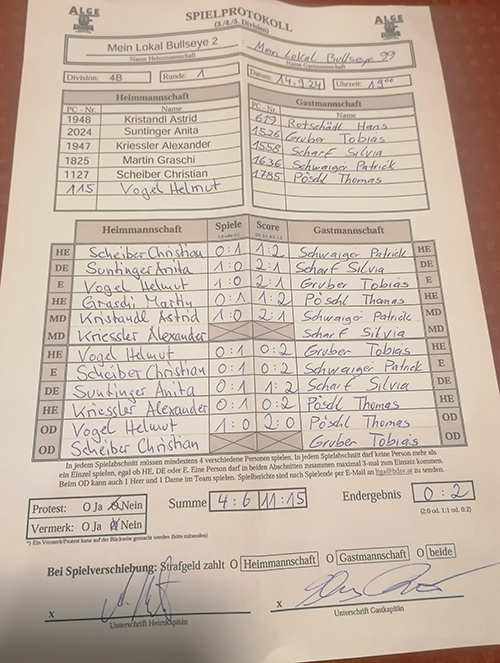 ALGE SPIELPROTOKOLL ALGE
(3./4./5. Division)
Mein Lokal Bullseye 2 Mein Lokal Bullseye 99
Name Heimmannschaft Name Gastmannschaft
Division: 4B Runde: 1 Datum: 14.9.24 Uhrzeit: 19 00
Heimmannschaft Gastmannschaft
PC - Nr. Name PC - Nr. Name
1948 Kristandl Astrid 619 Rotschädl Hans
2024 Suntinger Anita 1526 Gruber Tobias
1947 Kriessler Alexander 1558 Scharf Silvia
1825 Martin Graschi 1636 Schwaiger Patrick
1127 Scheiber Christian 1785 Pöschl Thomas
115 Vogel Helmut
Heimmannschaft Spiele Score Gastmannschaft
HE Scheiber Christian 0:1 1:2 Schwaiger Patrick HE
DE Suntinger Anita 1:0 2:1 Scharf Silvia DE
E Vogel Helmut 1:0 2:1 Gruber Tobias E
HE Graschi Martin 0:1 1:2 Pöschl Thomas HE
MD Kristandl Astrid 1:0 2:1 Schwaiger Patrick MD
MD Kriessler Alexander Scharf Silvia MD
HE Vogel Helmut 0:1 0:2 Gruber Tobias HE
E Scheiber Christian 0:1 0:2 Schwaiger Patrick E
DE Suntinger Anita 0:1 1:2 Scharf Silvia DE
HE Kriessler Alexander 0:1 0:2 Pöschl Thomas HE
OD Vogel Helmut 1:0 2:0 Pöschl Thomas OD
OD Scheiber Christian Gruber Tobias OD
In jedem Spielabschnitt müssen mindestens 4 verschiedene Personen spielen. In jedem Spielabschnitt darf keine Person mehr als
ein Einzel spielen, egal ob HE, DE oder E. Eine Person darf in beiden Abschnitten zusammen maximal 3-mal zum Einsatz kommen.
Beim OD kann auch 1 Herr und 1 Dame im Team spielen. Spielberichte sind nach Spielende per E-Mail an liga@bdsv.at zu senden.
Protest: O Ja O Nein Summe 4:6 11:15 Endergebnis 0:2
Vermerk: O Ja O Nein (2:0 od. 1:1 od. 0:2)
*) Ein Vermerk/Protest kann auf der Rückseite gemacht werden (bitte mitsenden)
Bei Spielverschiebung: Strafgeld zahlt O Heimmannschaft O Gastmannschaft O beide
x x
Unterschrift Heimkapitän Unterschrift Gastkapitän